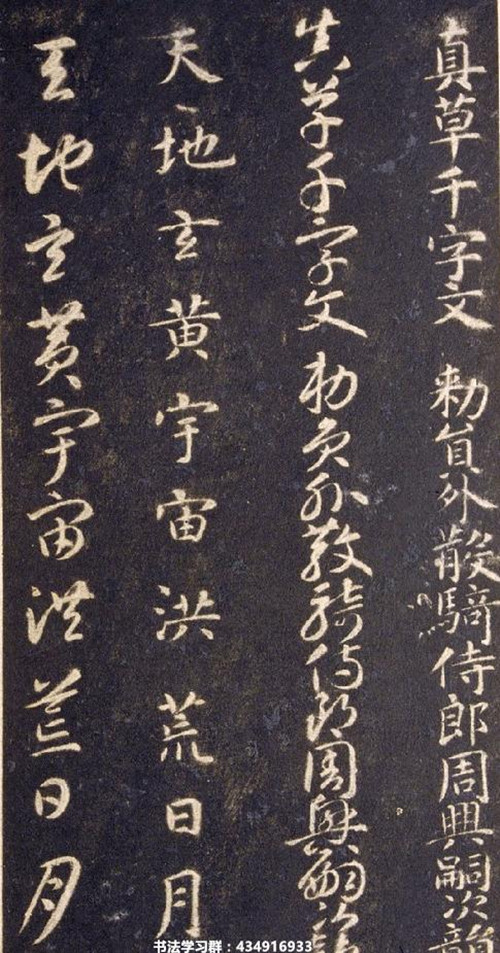 真草千字文 勑貟外散騎侍郎周興嗣次韻
真草千字文 勑貟外散騎侍郎周興嗣次韻
天地玄黄宇宙洪荒日月
天地玄黄宇宙洪荒日月
书法学习群：434916933